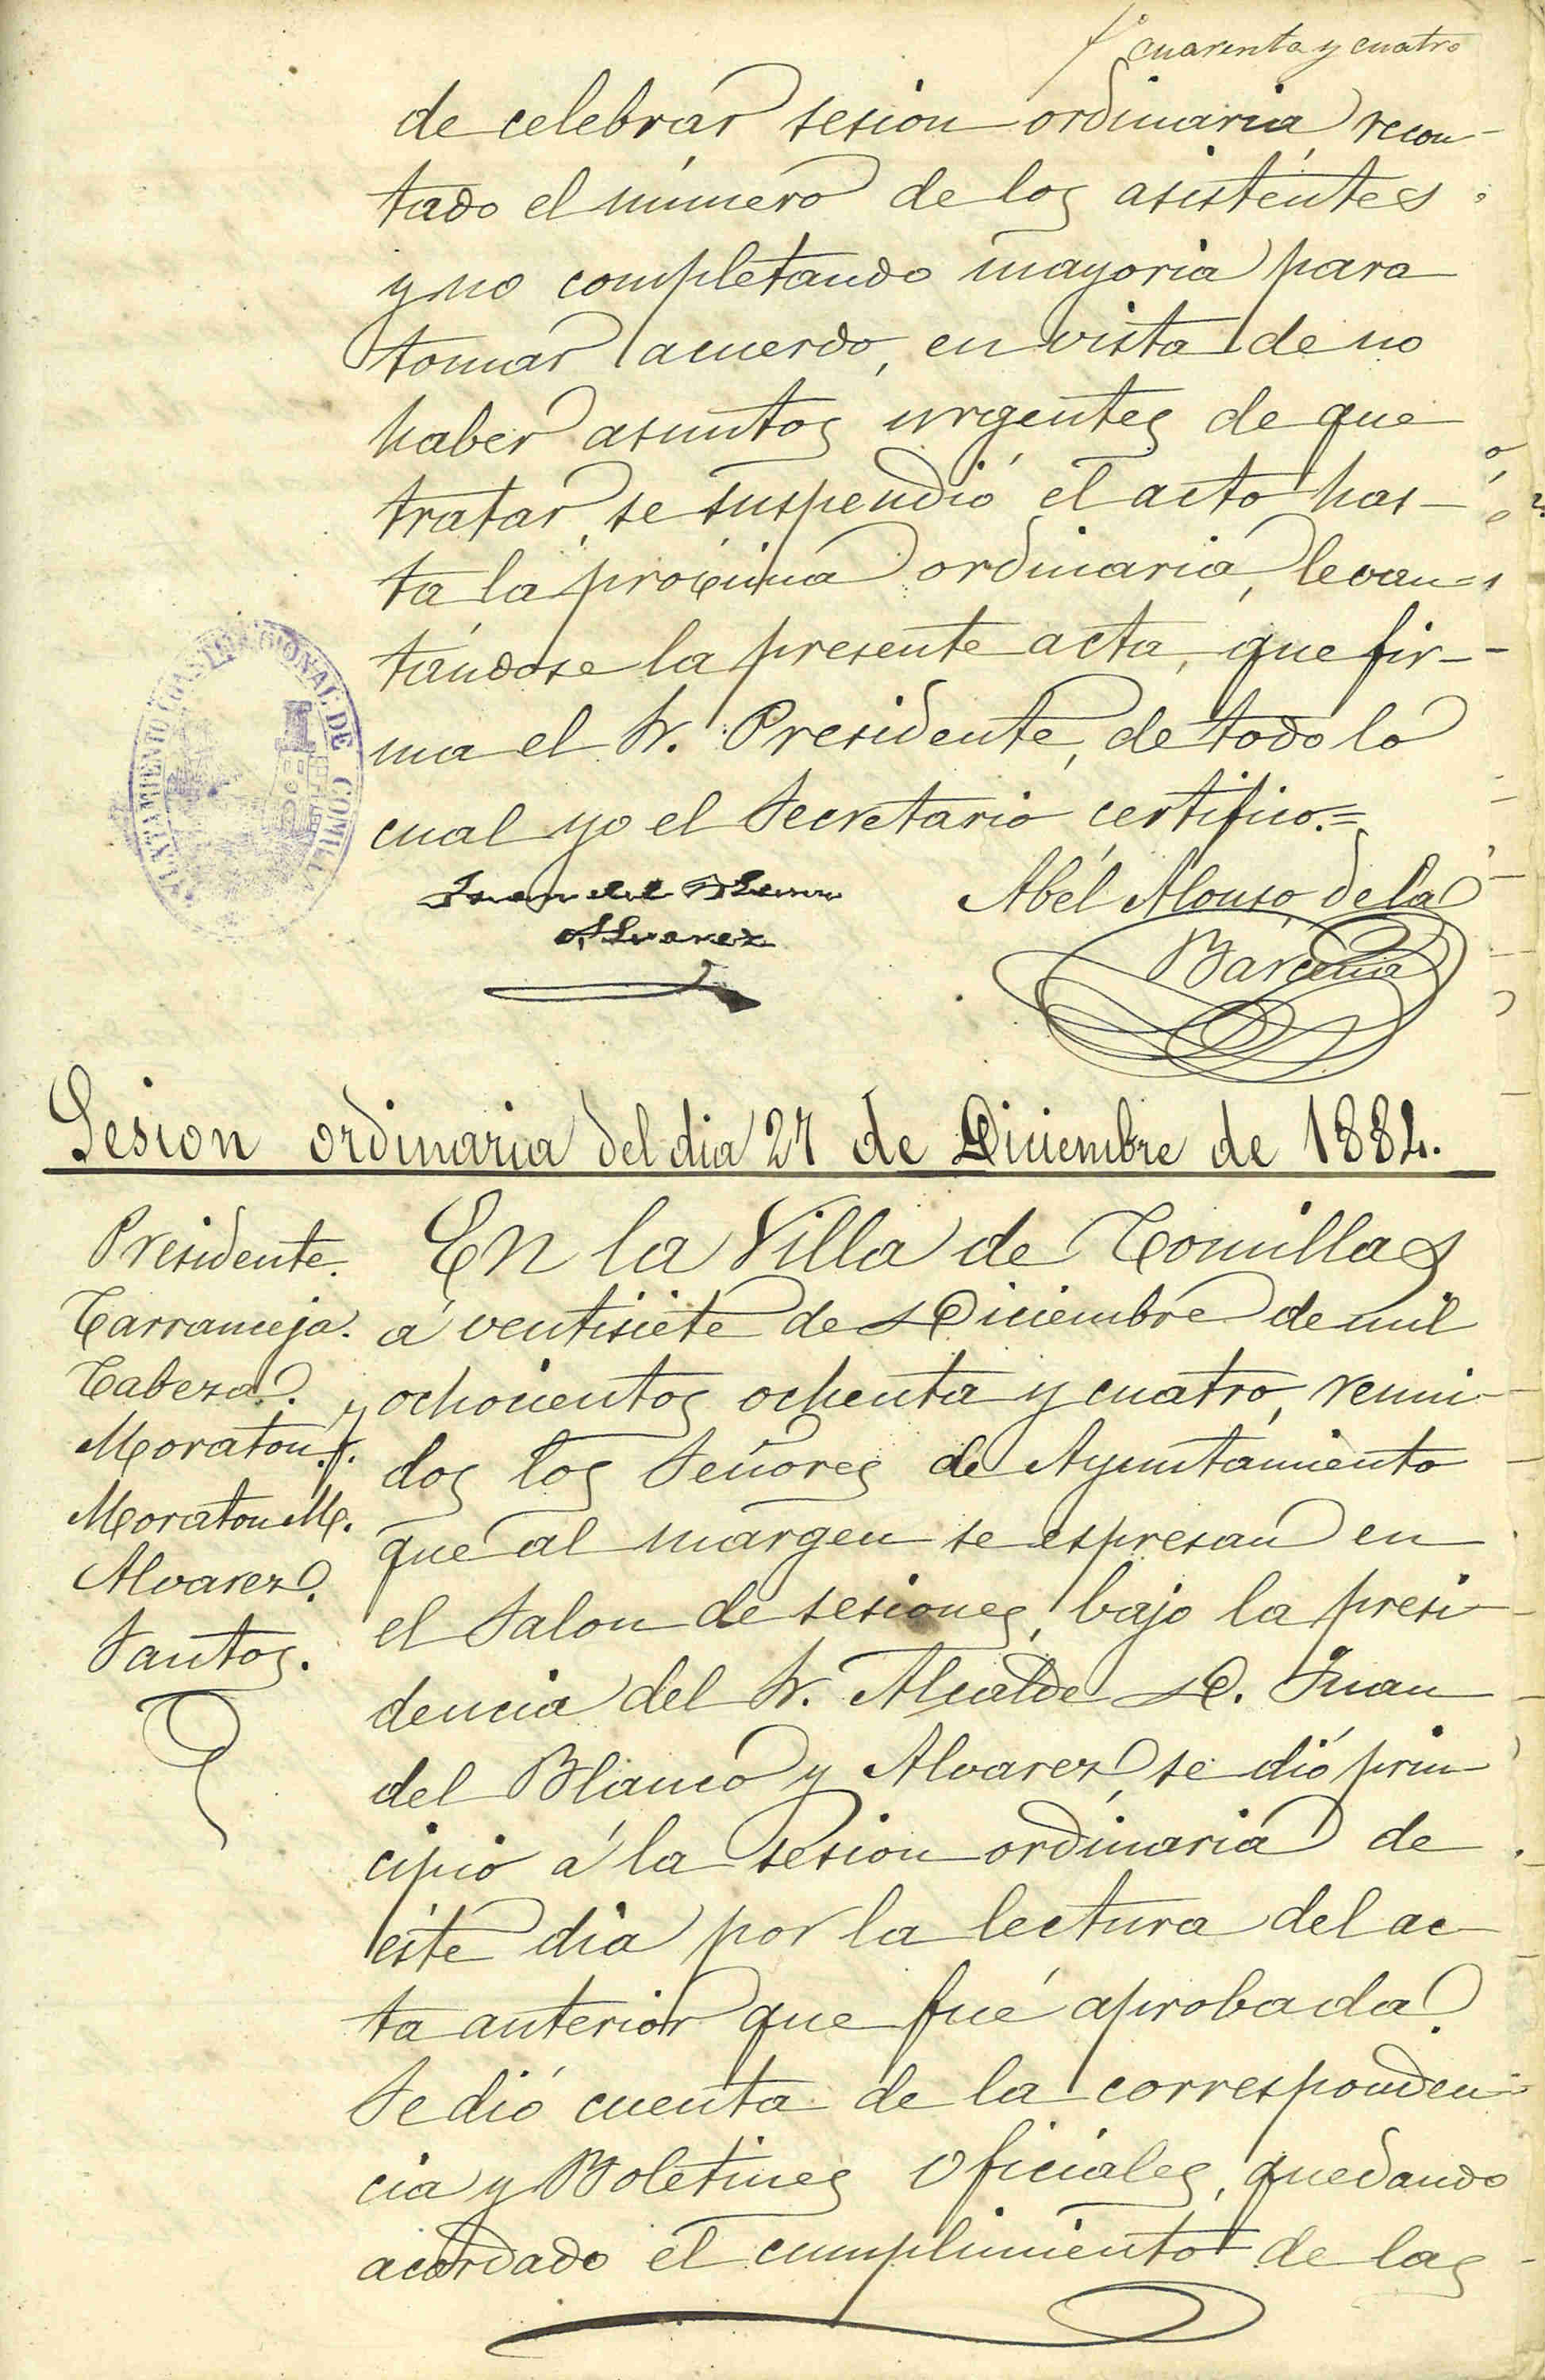 fº cuarenta y cuatro
de celebrar sesion ordinaria, recon-
tado el número de los asistentes
y no completando mayoria para
tomar acuerdo, en vista de no
haber asuntos urgentes de que
tratar, se suspendió el acto has-
ta la próxima ordinaria, levan-
tándose la presente acta, que fir-
ma el Sr. Presidente, de todo lo
cual yo el Secretario certifico.=
AYUNTAMIENTO CONSTITUCIONAL DE COMILLAS
Juan del Blanco
Alvarez
Abél Alonso de la
Bárcena
Sesion ordinaria del dia 27 de Diciembre de 1884.
Presidente.
Carranceja.
Cabeza.
Moraton J.
Moraton M.
Alvarez.
Santos.
En la Villa de Comillas
á ventisiete de Diciembre de mil
ochocientos ochenta y cuatro, reuni-
dos los Señores de Ayuntamiento
que al margen se espresan en
el Salon de sesiones, bajo la presi-
dencia del Sr. Alcalde D. Juan
del Blanco y Alvarez, se dió prin-
cipio á la sesion ordinaria de
éste dia por la lectura del ac-
ta anterior que fué aprobada.
Se dió cuenta de la corresponden-
cia y Boletines Oficiales, quedando
acordado el cumplimiento de las